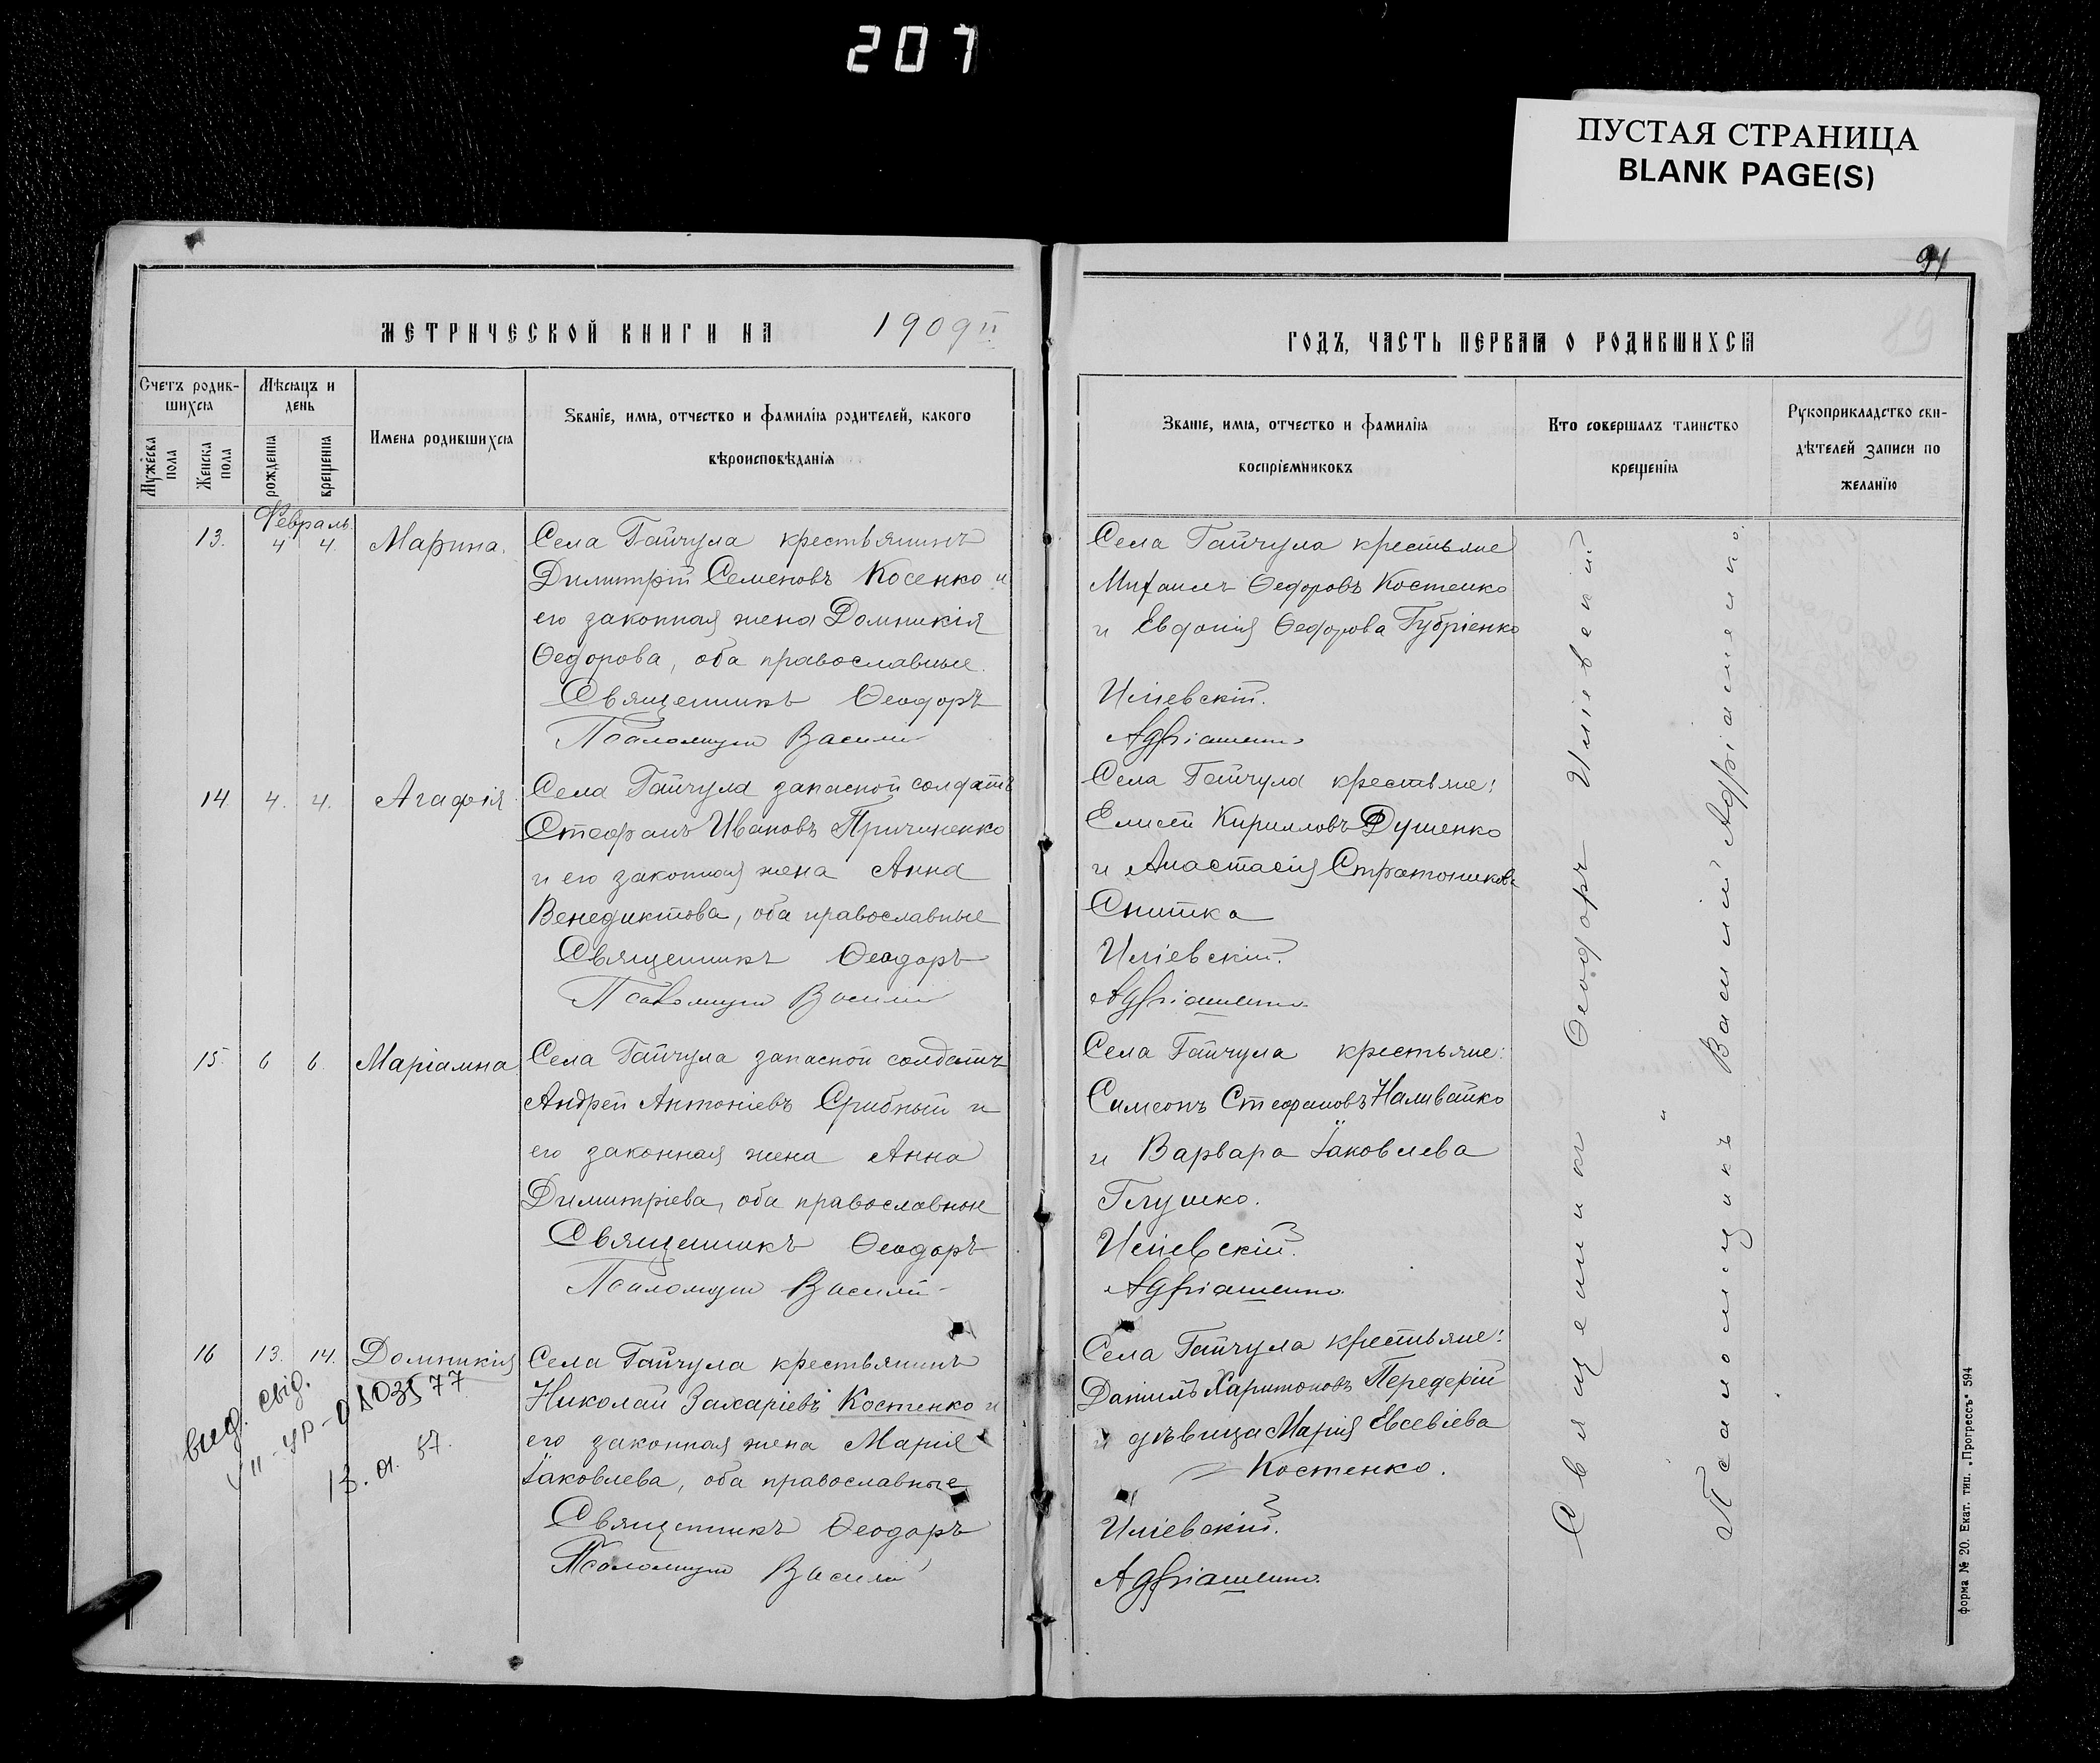 207
ПУСТАЯ СТРАНИЦА
BLANK PAGE(S)
91
89
МЕТРИЧЕСКОЙ КНИГИ НА 1909 г.
Счетъ родив-
шихся
Мѣсяцъ и
день
Мужеска пола
Женска пола
рожденія
крещенія
Имена родившихся
Званіе, имя, отчество и фамилія родителей, какого
вѣроисповѣданія
Февраль
13. 4 4. Марина.
Села Гайчула крестьянинъ
Димитрій Семеновъ Косенко и
его законная жена Домникія
Ѳедорова, оба православные.
Священникъ Ѳеодоръ
Псаломщикъ Василій
14. 4. 4. Агафія
Села Гайчула запасной солдатъ
Стефанъ Ивановъ Причиненко
и его законная жена Анна
Венедиктова, оба православные
Священникъ Ѳеодоръ
Псаломщикъ Василій
15. 6 6. Маріамна
Села Гайчула запасной солдатъ
Андрей Антоніевъ Срибный и
его законная жена Анна
Димитріева, оба православные
Священникъ Ѳеодоръ
Псаломщикъ Василій
16 13. 14. Домникія
вид. свід.
13. 01. 87.
Села Гайчула крестьянинъ
Николай Захаріевъ Костенко и
его законная жена Марія
Іаковлева, оба православные
Священникъ Ѳеодоръ
Псаломщикъ Василій
ГОДЪ, ЧАСТЬ ПЕРВАЯ О РОДИВШИХСЯ
Званіе, имя, отчество и фамилія
воспріемниковъ
Кто совершалъ таинство
крещенія
Рукоприкладство сви-
дѣтелей записи по
желанію
Села Гайчула крестьяне
Михаилъ Ѳедоровъ Костенко
и Евдокія Ѳедорова Губріенко
Иліевскій.
Адріашенко
Села Гайчула крестьяне:
Елисей Кирилловъ Душенко
и Анастасія Стратоникова
Снитка
Иліевскій.
Адріашенко.
Села Гайчула крестьяне:
Симеонъ Стефановъ Наливайко
и Варвара Іаковлева
Глушко.
Иліевскій.
Адріашенко.
Села Гайчула крестьяне:
Даніилъ Харитоновъ Передерій
и дѣвица Марія Евсевіева
Костенко.
Иліевскій.
Адріашенко.
Священникъ Ѳеодоръ Иліевскій
Псаломщикъ Василій Адріашенко.
форма № 20. Екат. тип. „Прогрессъ“ 594